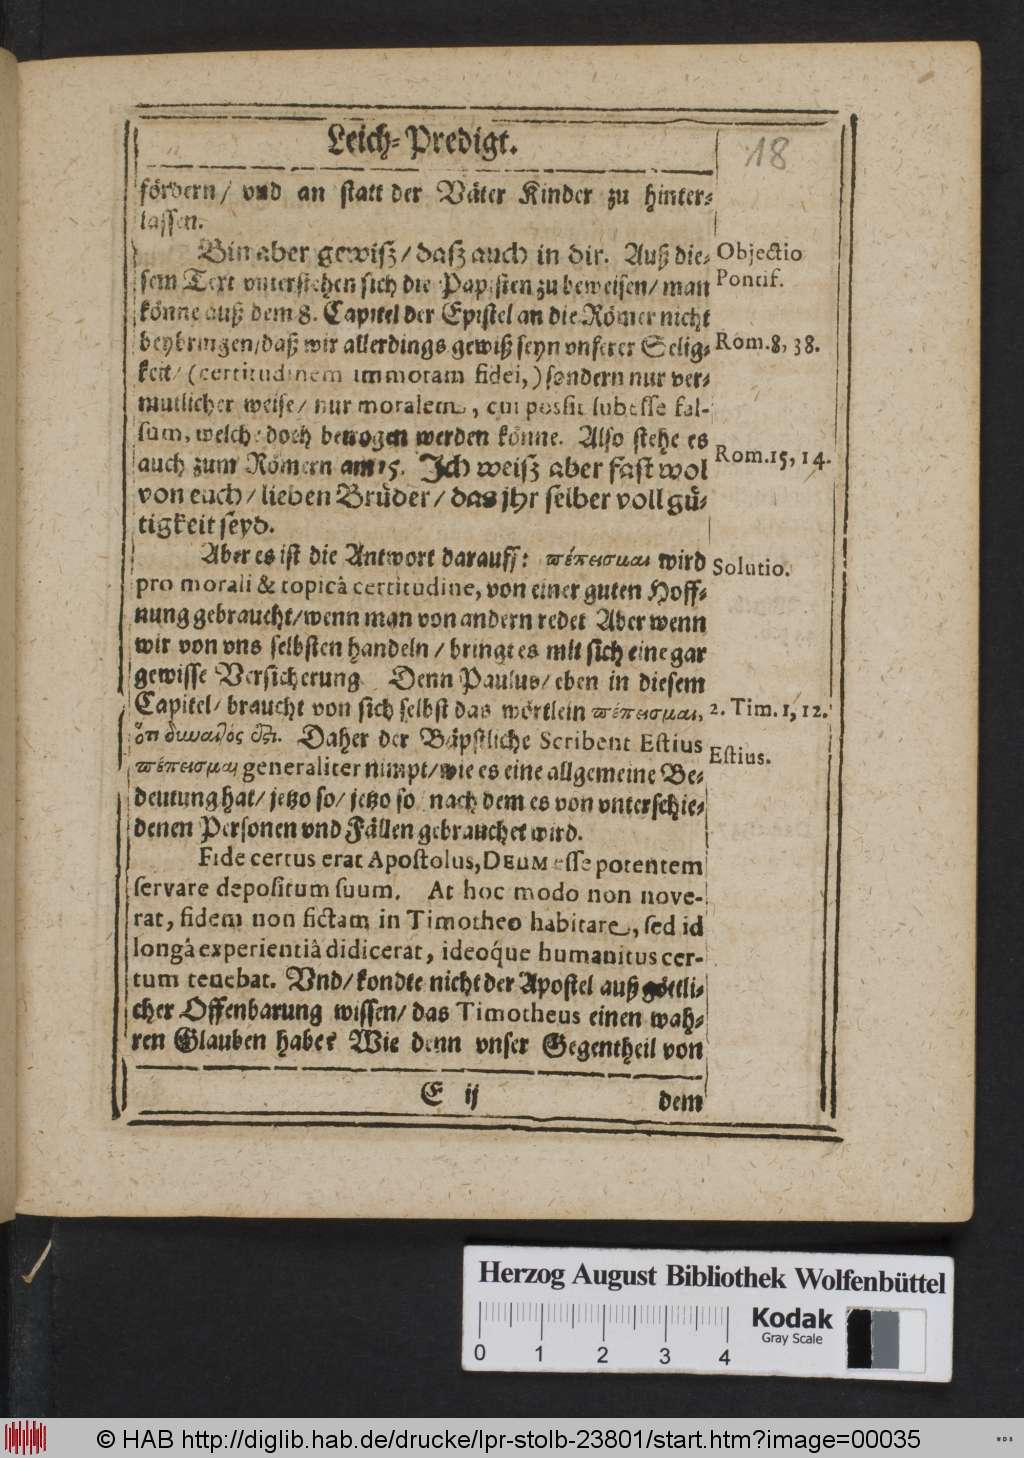 Leich-Predigt.
18
fördern/ vnd an statt der Väter Kinder zu hinter-
lassen.
Bin aber gewiß/ daß auch in dir. Auß die-
Objectio
Pontif.
sem Text vnterstehen sich die Papisten zu beweisen/ man
könne auß dem 8. Capitel der Epistel an die Römer nicht
beybringen/ daß wir allerdings gewiß seyn vnserer Selig-
Rom. 8, 38.
keit/ (certitudinem immotam fidei,) sondern nur ver-
mutlicher weise/ nur moralem, cui possit subesse fal-
sum, welche doch betrogen werden könne. Also stehe es
auch zum Römern am 15. Ich weiß aber fast wol
Rom. 15, 14.
von euch/ lieben Brüder/ das jhr selber voll gü-
tigkeit seyd.
Aber es ist die Antwort darauff: πέπεισμαι wird
Solutio.
pro morali & topicâ certitudine, von einer guten Hoff-
nung gebraucht/ wenn man von andern redet Aber wenn
wir von vns selbsten handeln/ bringt es mit sich eine gar
gewisse Versicherung Denn Paulus/ eben in diesem
Capitel/ braucht von sich selbst das wörtlein πέπεισμαι,
2. Tim. 1, 12.
ὅτι δυνατός ἐστι. Daher der Bäpstliche Scribent Estius
Estius.
πέπεισμαι generaliter nimpt/ wie es eine allgemeine Be-
deutung hat/ jetzo so/ jetzo so nach dem es von vnterschie-
denen Personen vnd Fällen gebrauchet wird.
Fide certus erat Apostolus, DEUM esse potentem
servare depositum suum. At hoc modo non nove-
rat, fidem non fictam in Timotheo habitare, sed id
longâ experientiâ didicerat, ideóque humanitus cer-
tum tenebat. Vnd/ kondte nicht der Apostel auß göttli-
cher Offenbarung wissen/ das Timotheus einen wah-
ren Glauben habe? Wie denn vnser Gegentheil von
E ij
dem
Herzog August Bibliothek Wolfenbüttel
0 1 2 3 4
Kodak
Gray Scale
© HAB http://diglib.hab.de/drucke/lpr-stolb-23801/start.htm?image=00035